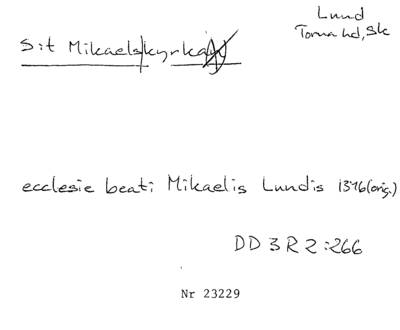 Lund
Torna hd, Sk
S:t Mikaels|kyrka
ecclesie beati Mikaelis Lundis 1346 (orig.)
DD 3 R 2:266
Nr 23229